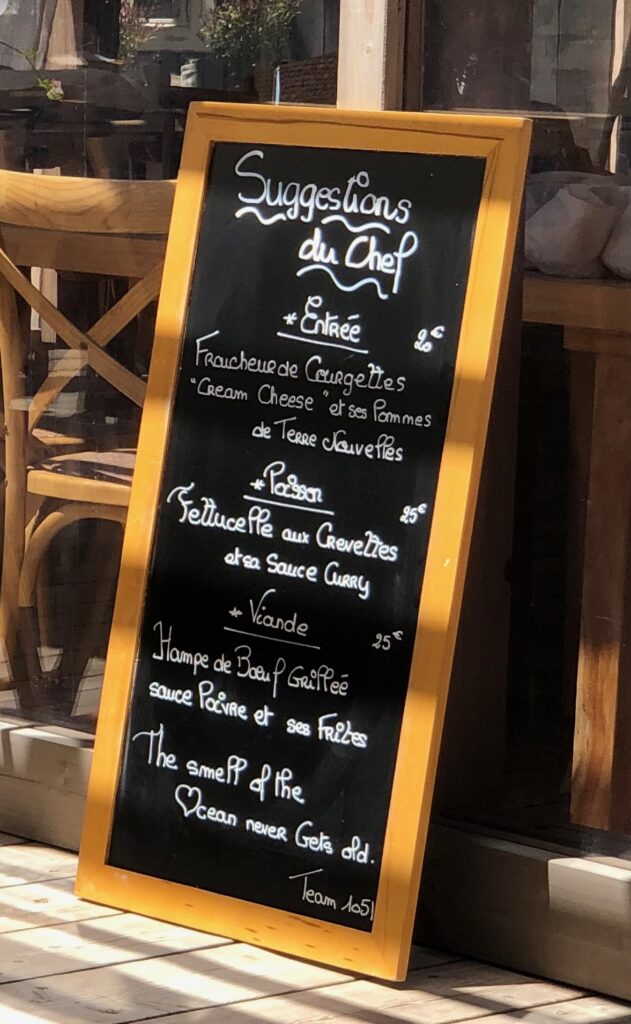 Suggestions
du Chef
* Entrée 20€
Fraicheur de Courgettes
"Cream Cheese" et ses Pommes
de Terre Nouvelles
* Poisson 25€
Fettucelle aux Crevettes
et sa Sauce Curry
* Viande 25€
Hampe de Bœuf Grillée
sauce Poivre et ses Frites
The smell of the
Ocean never Gets old.
Team 1051